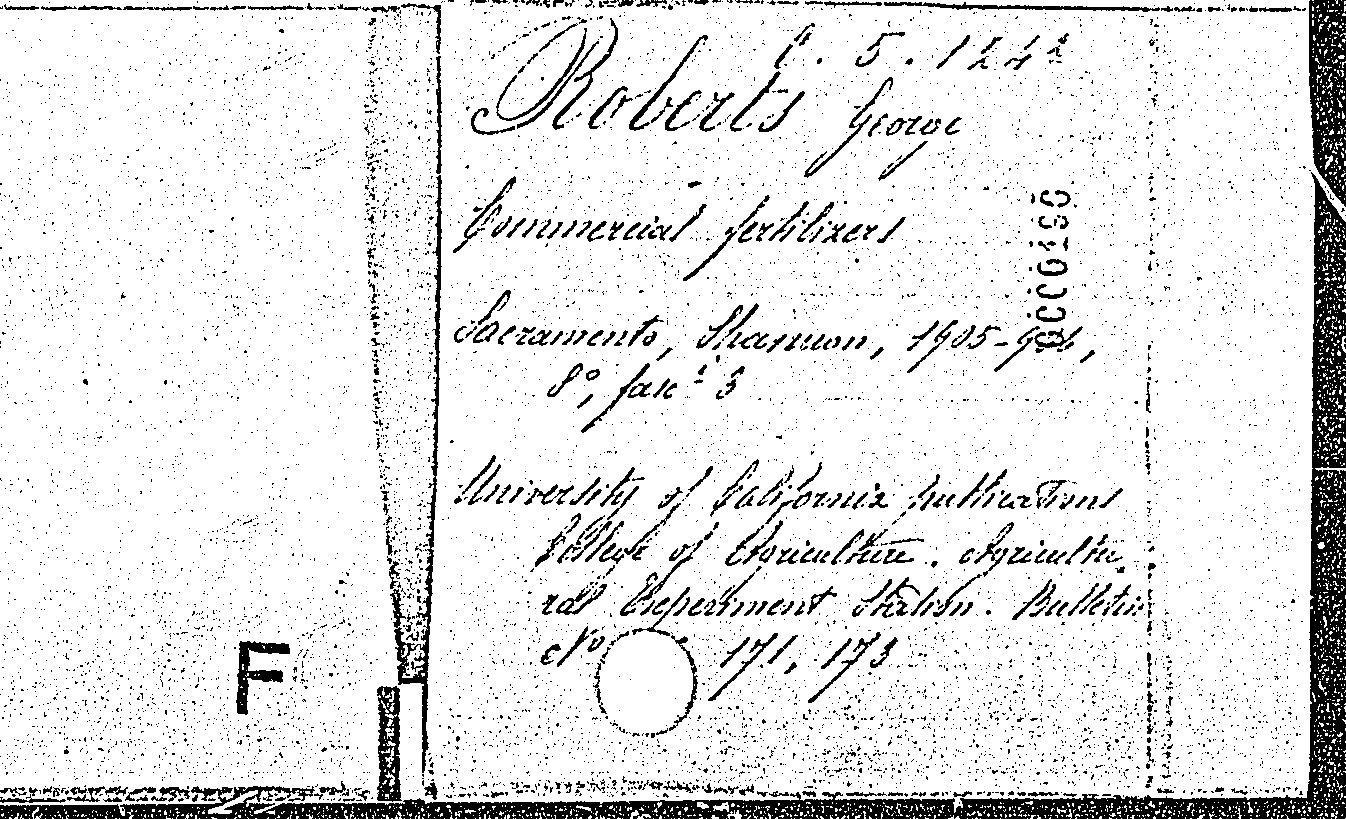 C. 5. 124²
Roberts George
Commercial fertilizers
Sacramento, Shannon, 1905-
8°, fasc¹ 3
University of California publications
College of Agriculture. Agricultu-
ral Experiment Station. Bulletin
N° 171, 173
F